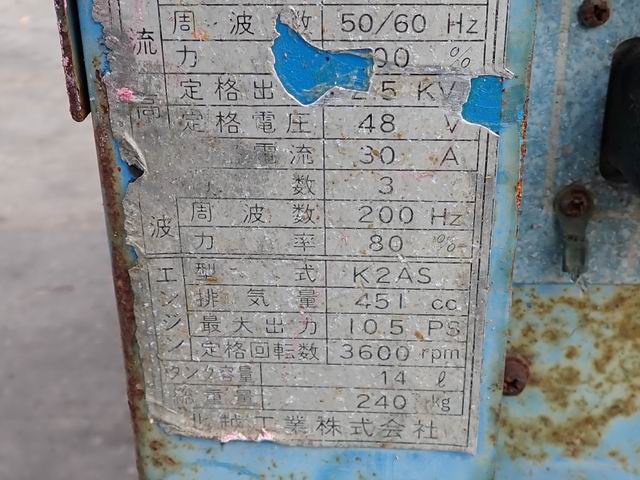 流 周波数 50/60 Hz
力 00 %
高 定格出 2.5 KV
定格電圧 48 V
電流 30 A
数 3
波 周波数 200 Hz
力率 80 %
エンジン 型式 K2AS
排気量 451 cc
最大出力 10.5 PS
定格回転数 3600 rpm
タンク容量 14 ℓ
総重量 240 kg
工業株式会社